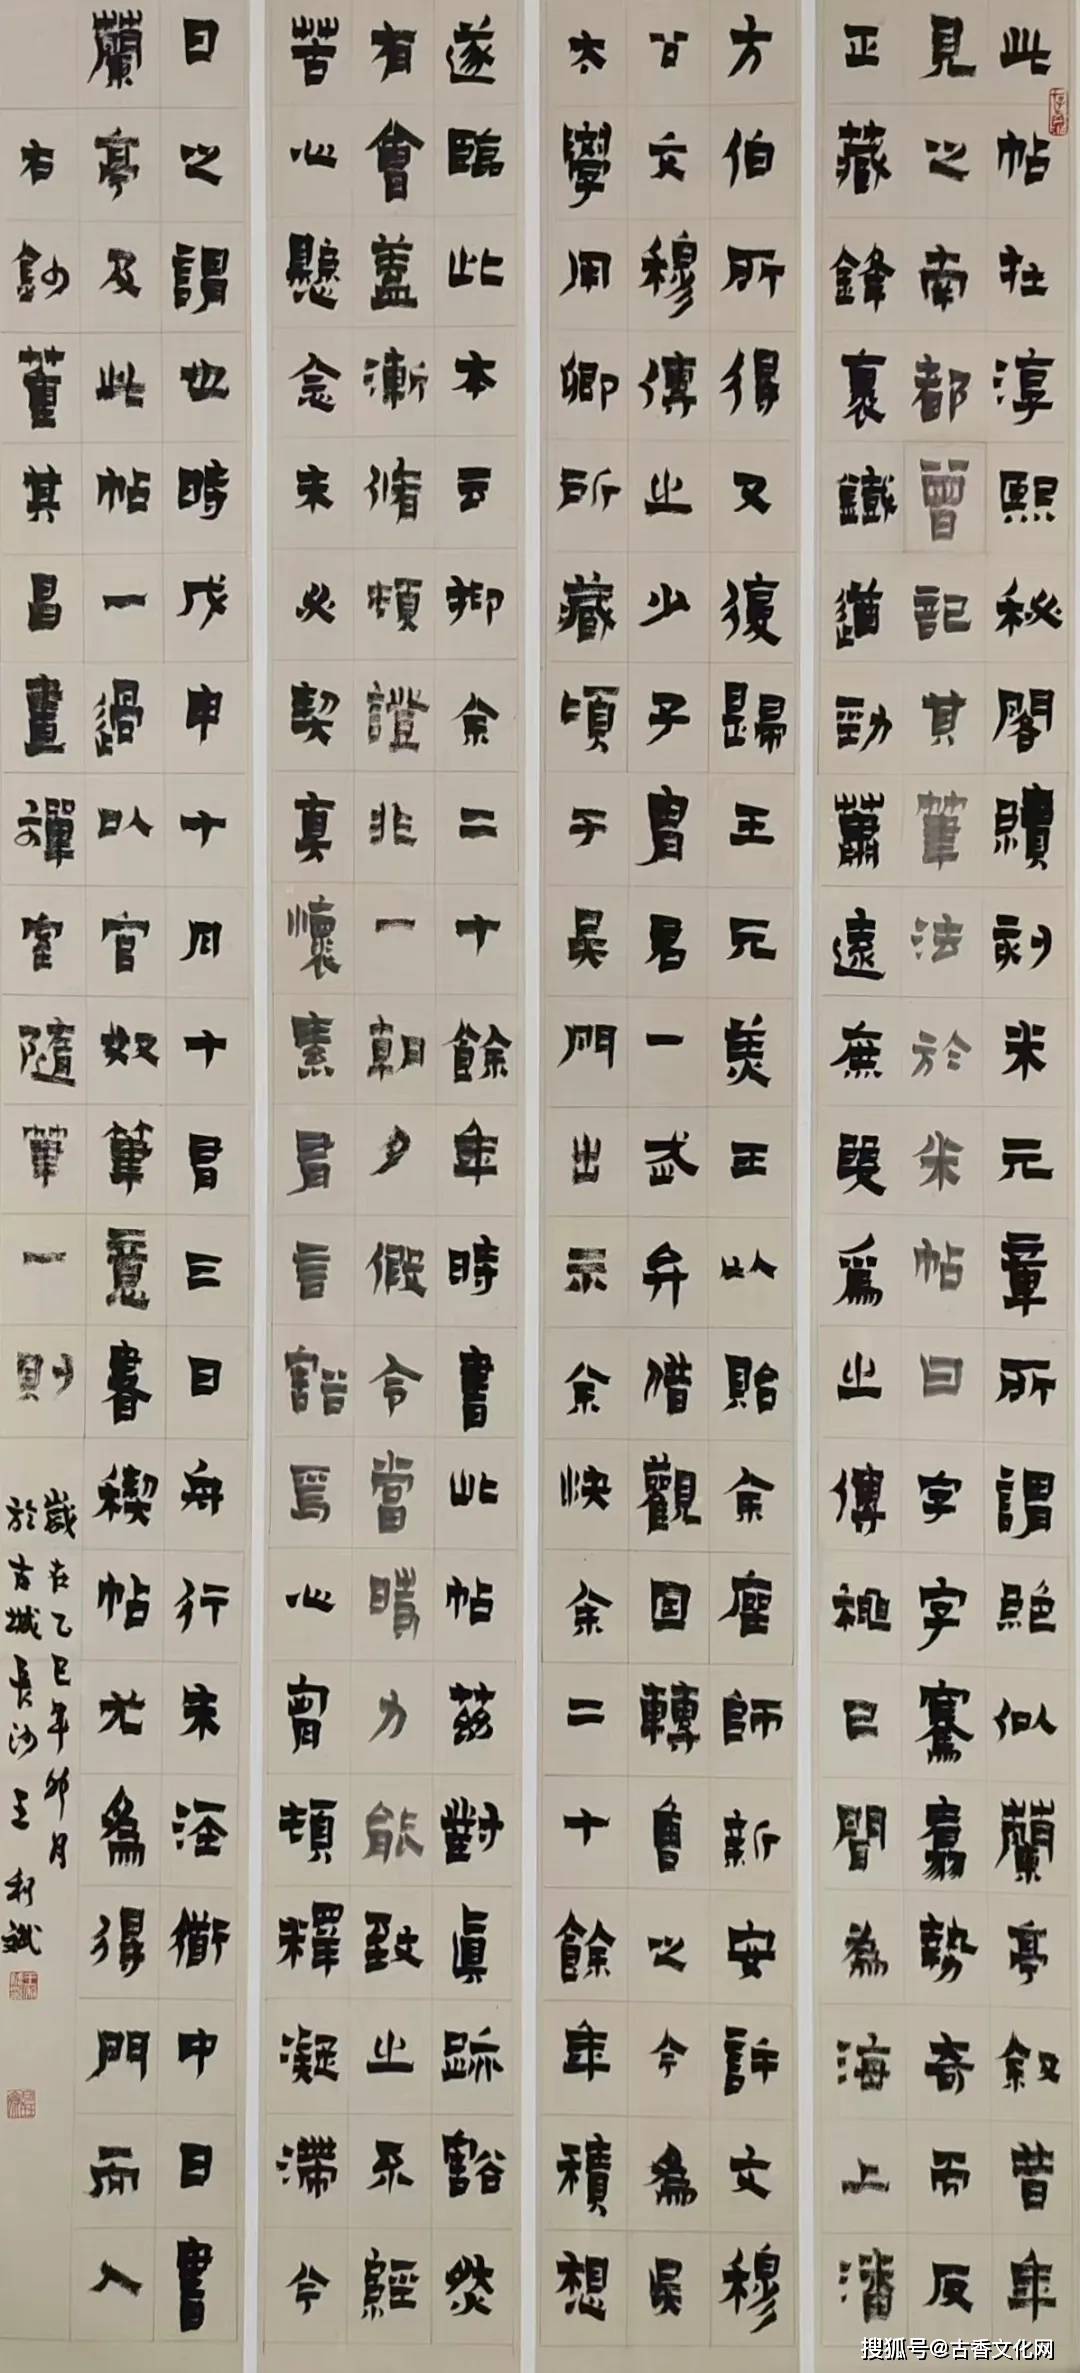 此帖在淳熙秘閣續刻米元章所謂絕似蘭亭敘昔年
見之南都曾記其筆法於米帖曰字字騫翥勢奇而反
正藏鋒裹鐵遒勁蕭遠庶幾爲之傳神已聞為海上潘
方伯所得又復歸王元美王以貽余座師新安許文穆
公文穆傳之少子胄君一武弁借觀因轉售之今為吳
太學用卿所藏頃于吳門出示余快余二十餘年積想
遂臨此本云抑余二十餘年時書此帖茲對眞跡豁然
有會蓋漸脩頓證非一朝夕假令當時力能致之不經
苦心懸念未必契真懷素有言豁焉心胷頓釋凝滯今
日之謂也時戊申十月十有三日舟行朱涇衜中日書
蘭亭及此帖一過以官奴筆意書禊帖尤為得門而入
右鈔董其昌畫禪室隨筆一則
歲在乙巳年卯月
於古城長沙王利斌
搜狐号@古香文化网